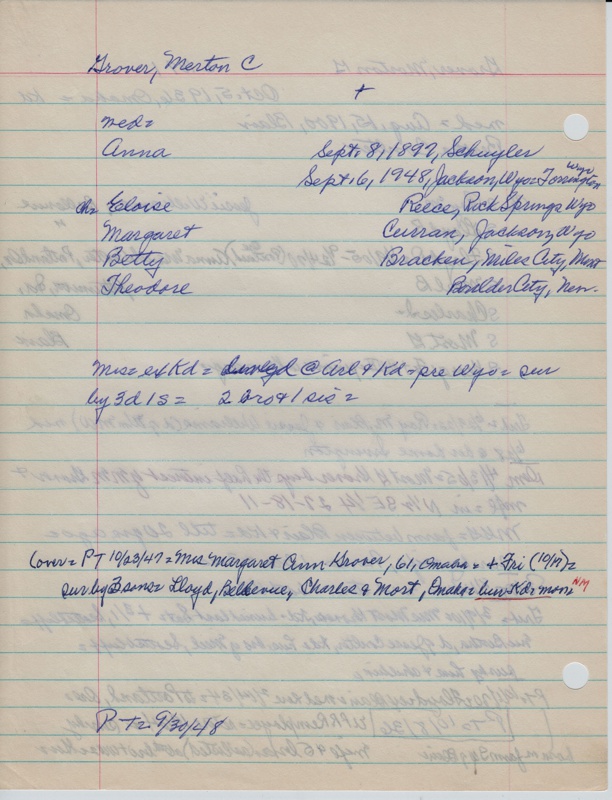 Grover, Merton C
+
med =
Anna Sept. 8, 1897, Schuyler
Sept. 6, 1948, Jackson, Wyo = Torrington Wyo
ch = Eloise Reece, Rock Springs Wyo
Margaret Curran, Jackson, Wyo
Betty Bracken, Miles City, Mont
Theodore Boulder City, Nev.
Mrs = ex Kd = @ Arl & Kd = pre Wyo = sur
by 3d 1s = 2 bro & 1 sis =
(over = PT 10/23/47 = Mrs Margaret Ann Grover, 61, Omaha = + Fri (10/17) =
sur by 3 sons = Lloyd, Bellevue, Charles & Mort, Omaha = bur Kd = mon = NM
PT = 9/30/48